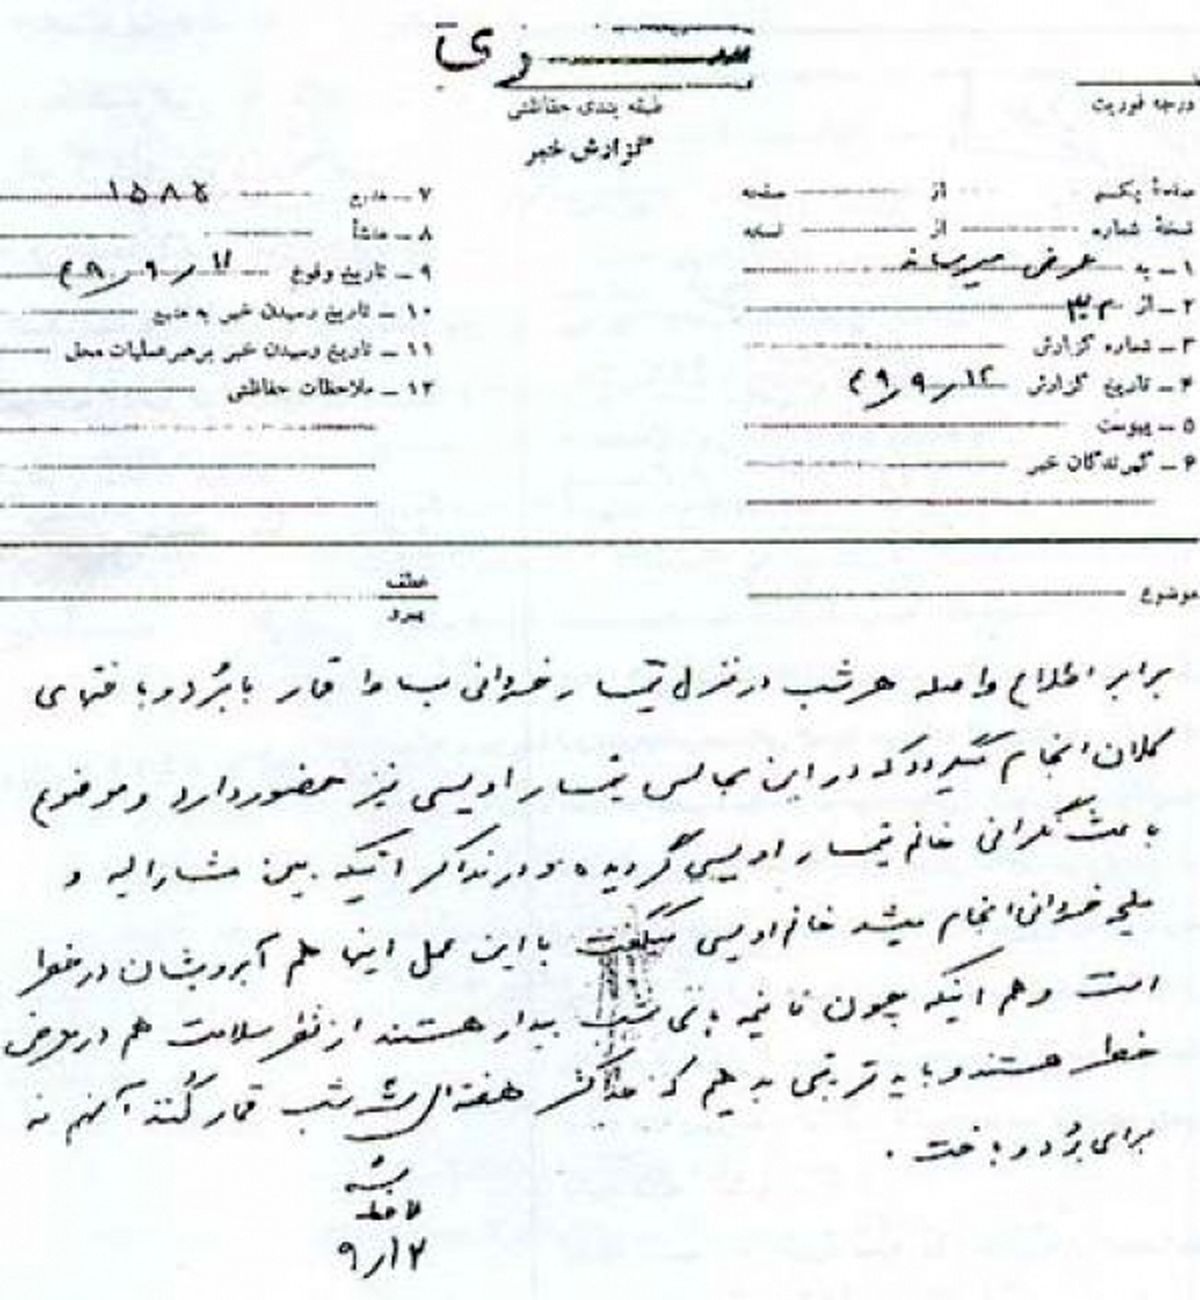 سری
درجه فوریت
طبقه بندی حفاظتی
گزارش خبر
صفحهٔ یکم از صفحه
نسخهٔ شماره از نسخه
۱ــ به عرض میرساند
۲ــ از ۳۰
۳ــ شماره گزارش
۴ــ تاریخ گزارش ۱۲ر۹ر۴۹
۵ــ پیوست
۶ــ گیرندگان خبر
۷ــ منبع ۱۵۸۸
۸ــ منشأ
۹ــ تاریخ وقوع ۱۱ر۹ر۴۹
۱۰ــ تاریخ رسیدن خبر به منبع
۱۱ــ تاریخ رسیدن خبر برهبرعملیات محل
۱۲ــ ملاحظات حفاظتی
موضوع
عطف
پیرو
برابر اطلاع واصله هر شب در منزل تیمسار خسروانی بساط قمار با بُرد و باختهای
کلان انجام میگیرد که در این مجالس تیمسار اویسی نیز حضور دارد و موضوع
باعث نگرانی خانم تیمسار اویسی گردیده و در مذاکراتیکه بین مشارالیه و
ملیحه خسروانی انجام میشد خانم اویسی میگفت با این عمل اینها هم آبرویشان در خطر
است و هم اینکه چون تا نیمه های شب بیدار هستند از نظر سلامت هم در معرض
خطر هستند و باید ترتیبی بدهیم که حداکثر هفته ای شب قمار کنند آنهم نه
برای بُرد و باخت .
ملاحظه شد
۹ر۱۲